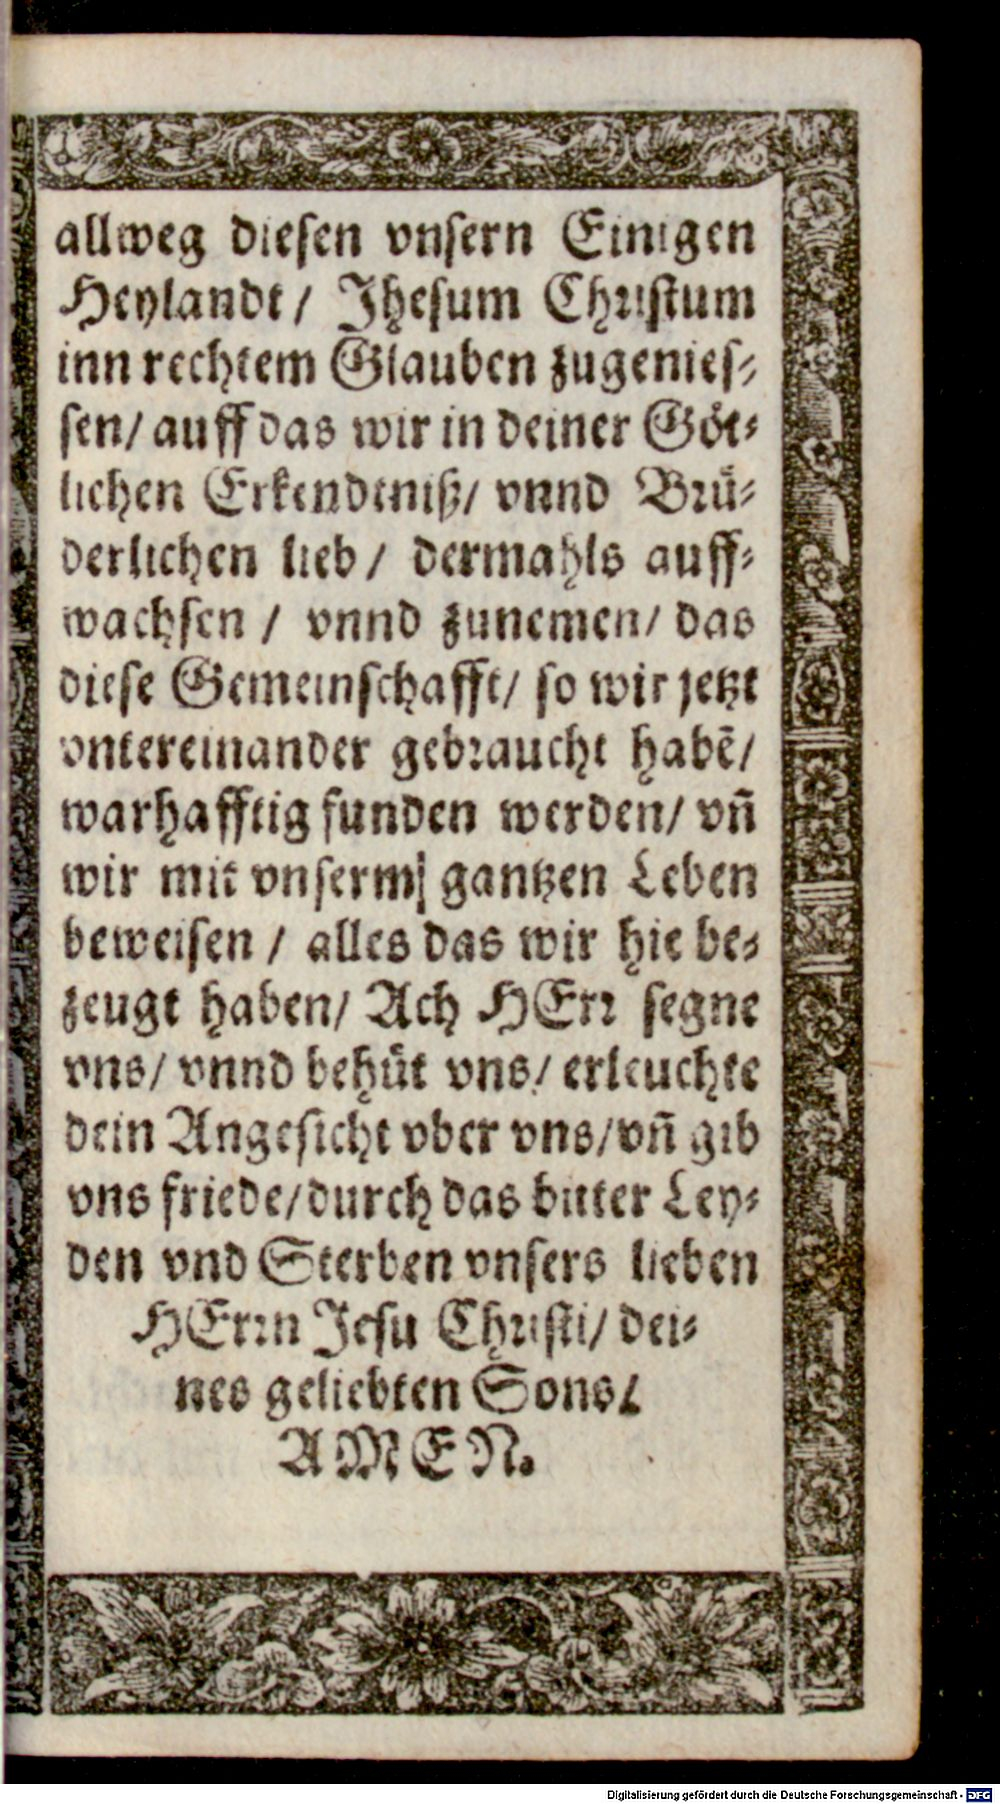 allweg diesen vnsern Einigen
Heylandt / Jhesum Christum
inn rechtem Glauben zugenies-
sen / auff das wir in deiner Göt-
lichen Erkendtniß / vnnd Brü-
derlichen lieb / dermahls auff-
wachsen / vnnd zunemen / das
diese Gemeinschafft / so wir jetzt
vntereinander gebraucht habẽ /
warhafftig funden werden / vñ
wir mit vnserm gantzen Leben
beweisen / alles das wir hie be-
zeugt haben / Ach HErr segne
vns / vnnd behüt vns / erleuchte
dein Angesicht vber vns / vñ gib
vns friede / durch das bitter Ley-
den vnd Sterben vnsers lieben
HErrn Jesu Christi / dei-
nes geliebten Sons /
AMEN.
Digitalisierung gefördert durch die Deutsche Forschungsgemeinschaft - DFG